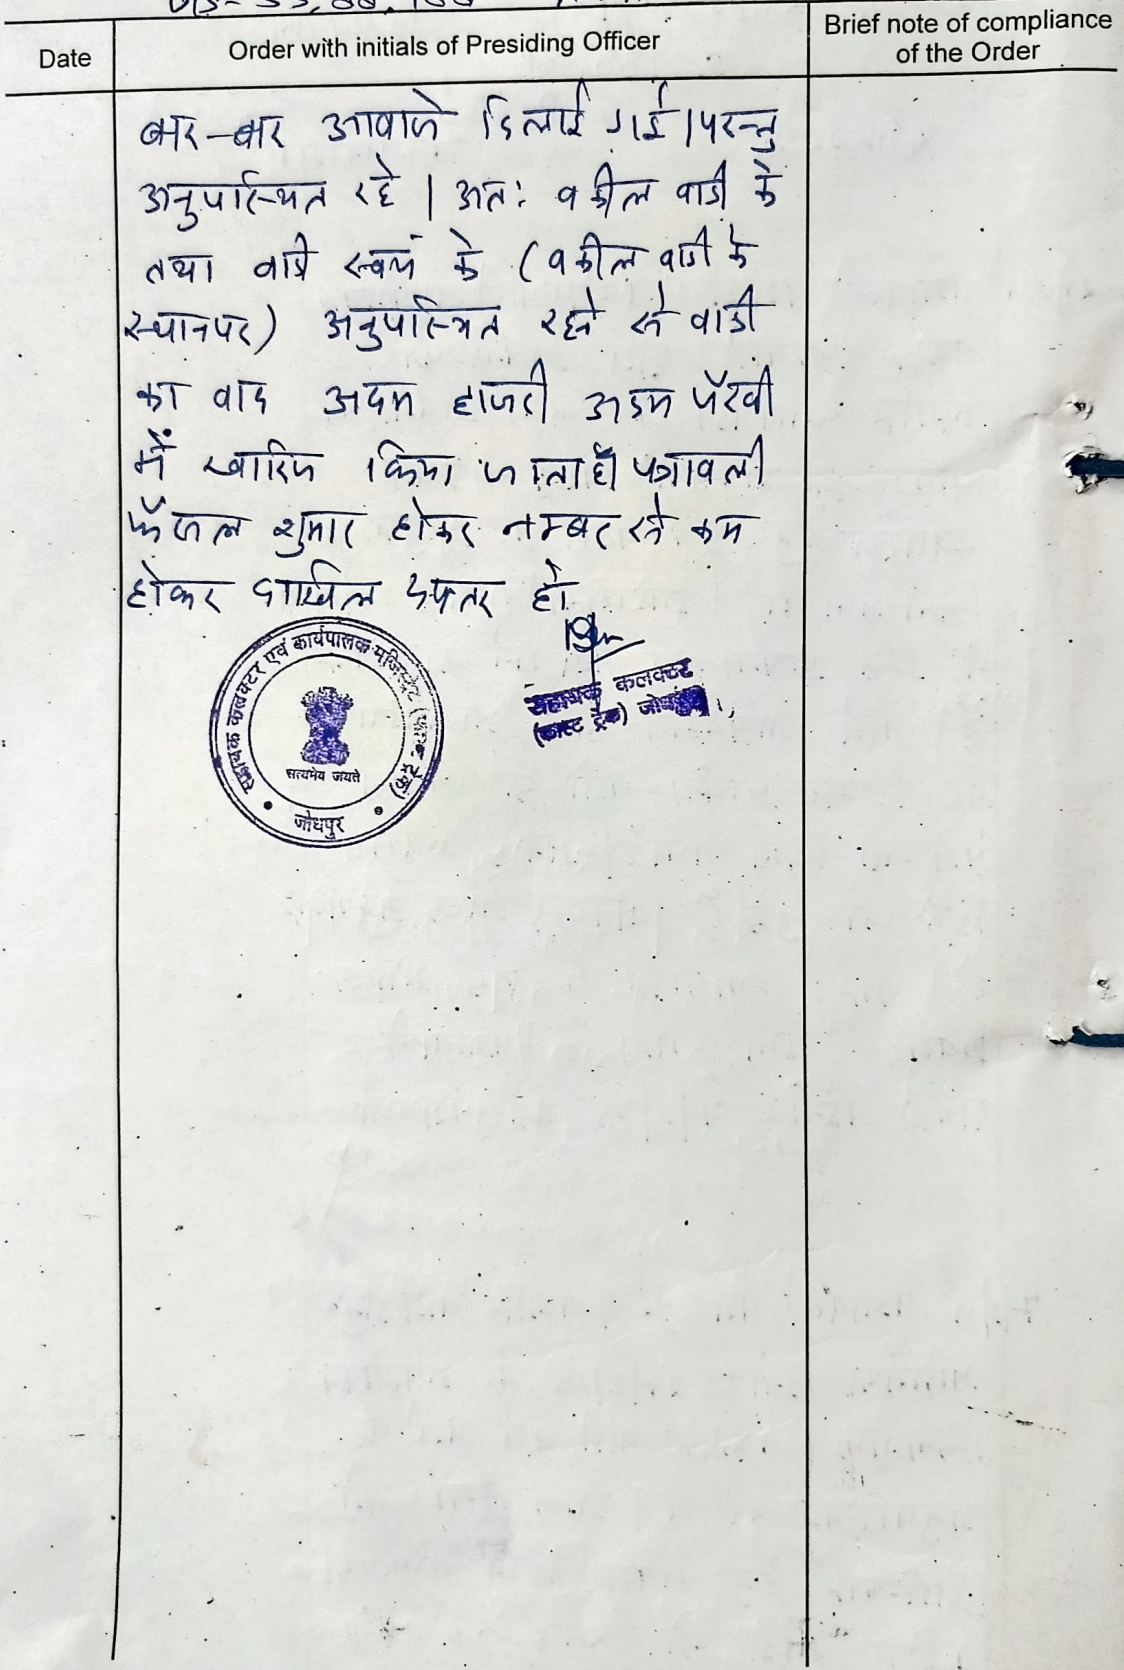 Date
Order with initials of Presiding Officer
Brief note of compliance
of the Order
बार-बार आवाजे दिलाई गई। परन्तु
अनुपस्थित रहे। अतः वकील वादी के
तथा वादी स्वयं के (वकील वादी के
स्थान पर) अनुपस्थित रहने से वादी
का वाद अदम हाजरी अदम पैरवी
में खारिज किया जाता है। पत्रावली
फैसल शुमार होकर नम्बर से कम
होकर दाखिल दफ्तर हो
सहायक कलक्टर एवं कार्यपालक मजिस्ट्रेट (फास्ट ट्रेक)
सत्यमेव जयते
जोधपुर
सहायक कलक्टर
(फास्ट ट्रेक) जोधपुर